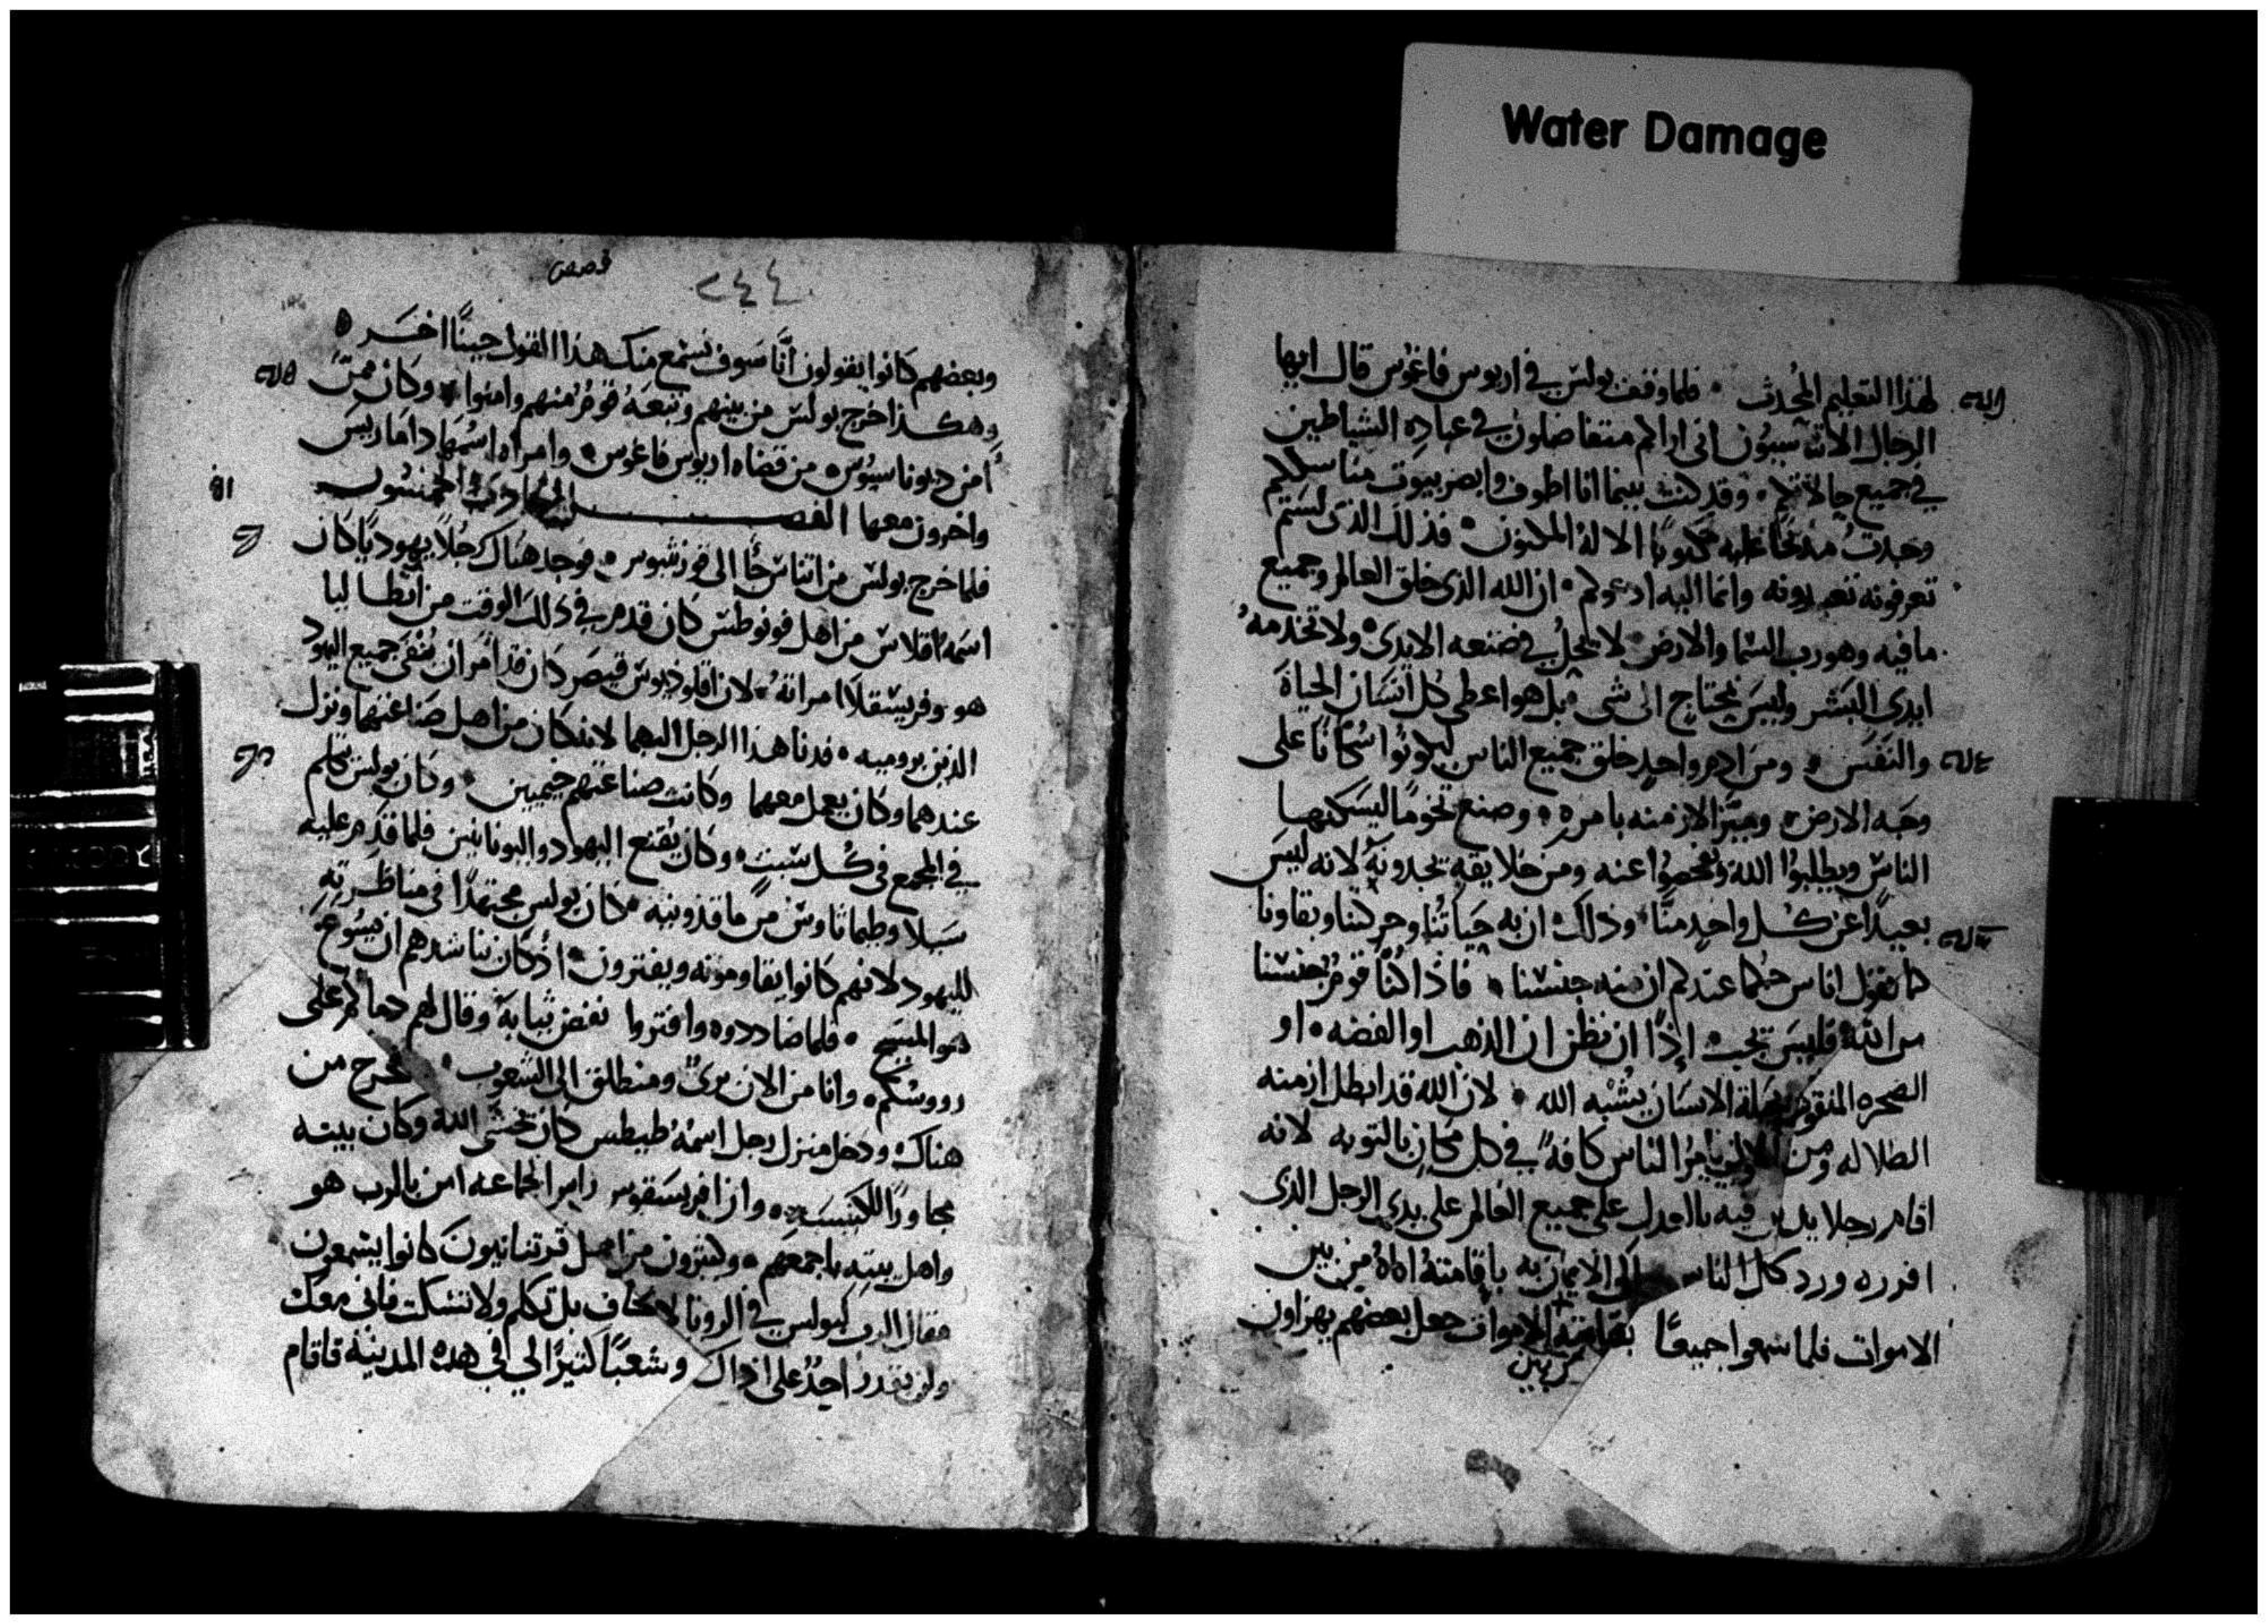 Water Damage
لهذا التعليم المُحدث ۰ فلما وقف بولس في اريوس فاغوس قال ايها
الرجال الاثنآسيون انى اراكم متفاضلون في عباده الشياطين
في جميع حالاتكم ۰ وقد كنت بينما انا اطوف وابصر بيوت مناسككم
وجدتُ مذبحًا عليه مكتوبًا الالهُ المكنون ۰ فذلك الذى لستم
تعرفونه تعبدونه وانما اليه ادعوكم ۰ ان الله الذى خلق العالم وجميع
ما فيه وهو رب السما والارض لا يحلُ في صنعه الايدى ولا تخدمهُ
ايدى البَشر وليسَ يحتاج الى شى ۰ بل هو اعطى كل انسَان الحياة
والنَفَس ۰ ومن ادم واحدٍ خلق جميع الناس ليكونوا سُكانًا على
وجه الارض ۰ وميّز الازمنه بامره ۰ وصنع تخومًا ليسكنها
الناسْ ويطلبوُا اللهَ ويفحصوُا عنه ومن خلايقهِ يجدونهَ لانه ليسَ
بعيدًا عن كل واحدٍ منَّا ۰ وذلك ان به حَياتُنا وحركتنا وبقاونا
كما يقول اناس حكما عندكم ان منه جنسْنا ۰ فاذا كُنَّا قومُ جنسْنا
من الله فليسَ يجب إذًا ان نظن ان الذهب او الفضه ۰ او
الصخره المنقوشه الانسَان يشْبه الله ۰ لان الله قد ابطل ازمنه
الضلاله ومن يامرُ الناس كافهً في كل مكانٍ بالتوبه لانه
اقام رجلا يدين فيه بالعدل على جميع العالم على يدي الرجل الذى
افرزه ورد كل الناس الى الايمان به باقامتهُ اياهُ من بين
الاموات فلما سَمعوا جميعًا بقيامته الاموات جعل بعضهم يهزاون
من بين
قصص
٢٤٤
وبعضهم كانوا يقولون انَّا سَوف نسْمع منك هذا القول حينًا اخَر ۰
وهكذا خرج بولسْ من بينهم وتبعَهُ قومُ منهم وامنوا ۰ وكان ممَّن
امن ديوناسيُوس ۰ من قضاه اريوس فاغوس ۰ وامراه اسْمهَا داماريسَ
واخرون معهما الفصل الحادى الخمسُون
فلما خرج بولسْ من اثناسْ جا الى قورنثيوس ۰ فوجد هناك رجُلاً يهوديًا كان
اسمه اقلاسْ من اهل فونوطسْ كان قدم في ذلك الوقت من انطاليا
هو وفريسْقلاَ امراتهُ ۰ لان اقلوذيوسْ قيصَر كان قد امر ان يُنفى جميع اليهود
الذين بروميه ۰ فدنا هذا الرجل اليهما لانه كان من اهل صَناعتهما ونزل
عندهما وكان يعمل معهما وكانت صناعتهم خيميين ۰ وكان بولسْ يتكلم
في المجمع فى كُل سَبت ۰ وكان يُقنع اليهود واليونانيين فلما قدِم عليه
سَيلا وطيماثاوسْ من ماقذونيه ۰ كان بولس مجتهدًا في مناظرتهِ
لليهود لانهم كانوا يقاومونه ويفترون ۰ اذ كان يناشدهم ان يسُوعَ
هو المسيح ۰ فلما ضاددوه وافتروا نفض ثيابهَ وقال لهم دماكم على
رووسْكم ۰ وانا من الان برىٌ ومنطلق الى الشعوب ۰ فخرج من
هناك ودخل منزل رجل اسمهُ طيطس كان يخشْى اللهَ وكان بيته
مجاورًا للكنيسَه ۰ وان افريسقوس رايس الجماعه امن بالرب هو
واهل بيته باجمعِهم ۰ وكثيرون من اهل قرنثانيونَ كانوا يسْمعون
فقال الرب لبولس في الرويا لا تخاف بل تكلم ولا تسْكت فانى معك
ولن يقدر احدٌ على اذاك وشعبًا كثيرًا لي في هذه المدينهَ فاقام